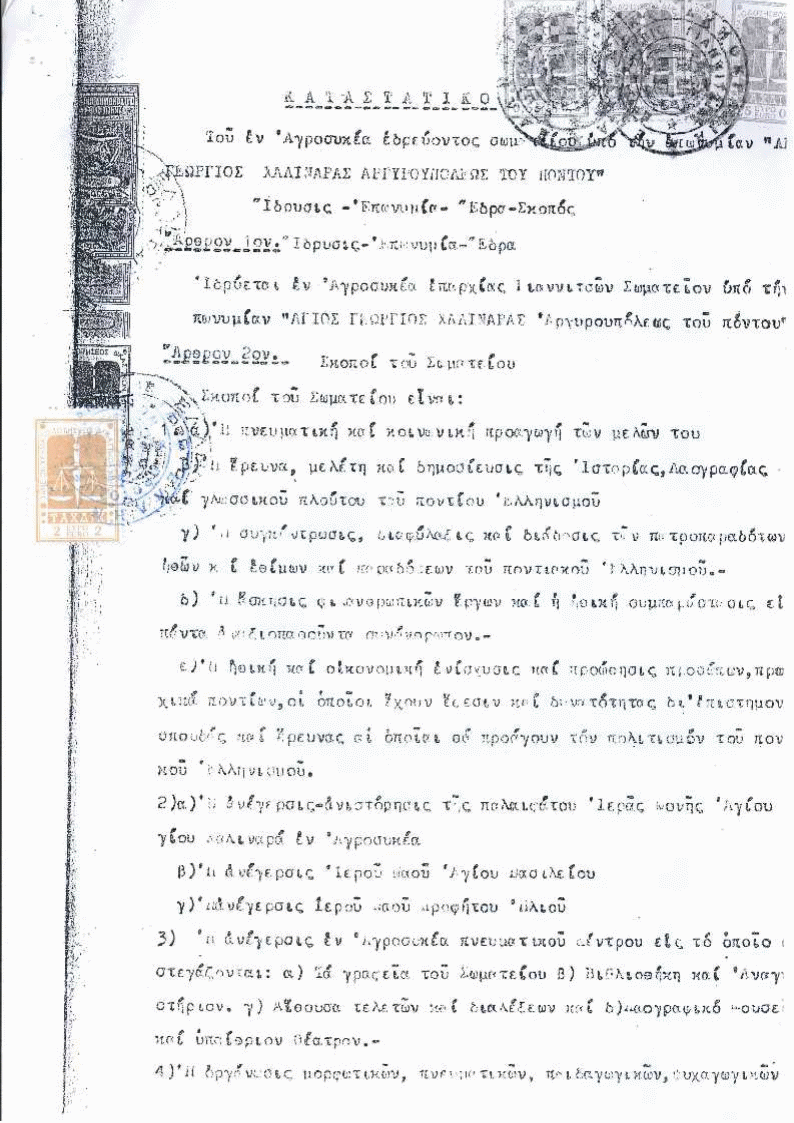 ΚΑΤΑΣΤΑΤΙΚΟ
Τοῦ ἐν Ἀγροσυκέα ἑδρεύοντος σωματείου ὑπό τήν ἐπωνυμίαν "ΑΓ
ΓΕΩΡΓΙΟΣ ΧΑΛΙΝΑΡΑΣ ΑΡΓΥΡΟΥΠΟΛΕΩΣ ΤΟΥ ΠΟΝΤΟΥ"
Ἵδρυσις -Ἐπωνυμία- Ἕδρα-Σκοπός
Ἄρθρον 1ον. Ἵδρυσις-Ἐπωνυμία-Ἕδρα
Ἱδρύεται ἐν Ἀγροσυκέα ἐπαρχίας Γιαννιτσῶν Σωματεῖον ὑπό τήν
πωνυμίαν "ΑΓΙΟΣ ΓΕΩΡΓΙΟΣ ΧΑΛΙΝΑΡΑΣ Ἀργυρουπόλεως τοῦ πόντου"
Ἄρθρον 2ον.- Σκοποί τοῦ Σωματείου
Σκοποί τοῦ Σωματείου εἶναι:
1 ά) Ἡ πνευματική καί κοινωνική προαγωγή τῶν μελῶν του
β) Ἡ ἔρευνα, μελέτη καί δημοσίευσις τῆς Ἱστορίας, Λαογραφίας
καί γλωσσικοῦ πλούτου τοῦ ποντίου Ἑλληνισμοῦ
γ) Ἡ συγκέντρωσις, διαφύλαξις καί διάδοσις τῶν πατροπαραδότων
ἠθῶν καί ἐθίμων καί παραδόσεων τοῦ ποντιακοῦ Ἑλληνισμοῦ.-
δ) Ἡ ἄσκησις φιλανθρωπικῶν ἔργων καί ἡ ἠθική συμπαράστασις εἰ
πάντα ἀναξιοπαθοῦντα συνάνθρωπον.-
ε) Ἡ ἠθική καί οἰκονομική ἐνίσχυσις καί προώθησις προσώπων, πρω
χικά ποντίων, οἱ ὁποῖοι ἔχουν ἔφεσιν καί δυνατότητας δι' ἐπιστημον
σπουδάς καί ἔρευνας αἱ ὁποῖαι θά προάγουν τόν πολιτισμόν τοῦ πον
κοῦ Ἑλληνισμοῦ.
2)α) Ἡ ἀνέγερσις-ἀνιστόρησις τῆς παλαιφάτου Ἱερᾶς Μονῆς Ἁγίου
γίου Χαλιναρᾶ ἐν Ἀγροσυκέα
β) Ἡ ἀνέγερσις Ἱεροῦ Ναοῦ Ἁγίου Βασιλείου
γ) Ἡ ἀνέγερσις Ἱεροῦ Ναοῦ Προφήτου Ἠλιοῦ
3) Ἡ ἀνέγερσις ἐν Ἀγροσυκέα πνευματικοῦ Κέντρου εἰς τό ὁποῖο
στεγάζονται: α) Τά γραφεῖα τοῦ Σωματείου β) Βιβλιοθήκη καί Ἀναγν
στήριον. γ) Αἴθουσα τελετῶν καί διαλέξεων καί δ) Λαογραφικό Μουσε
καί ὑπαίθριον θέατρον.-
4) Ἡ ὀργάνωσις μορφωτικῶν, πνευματικῶν, παιδαγωγικῶν, ψυχαγωγικῶν
ΤΑΧΔΙΚ
2 ΕΥΡΩ 2